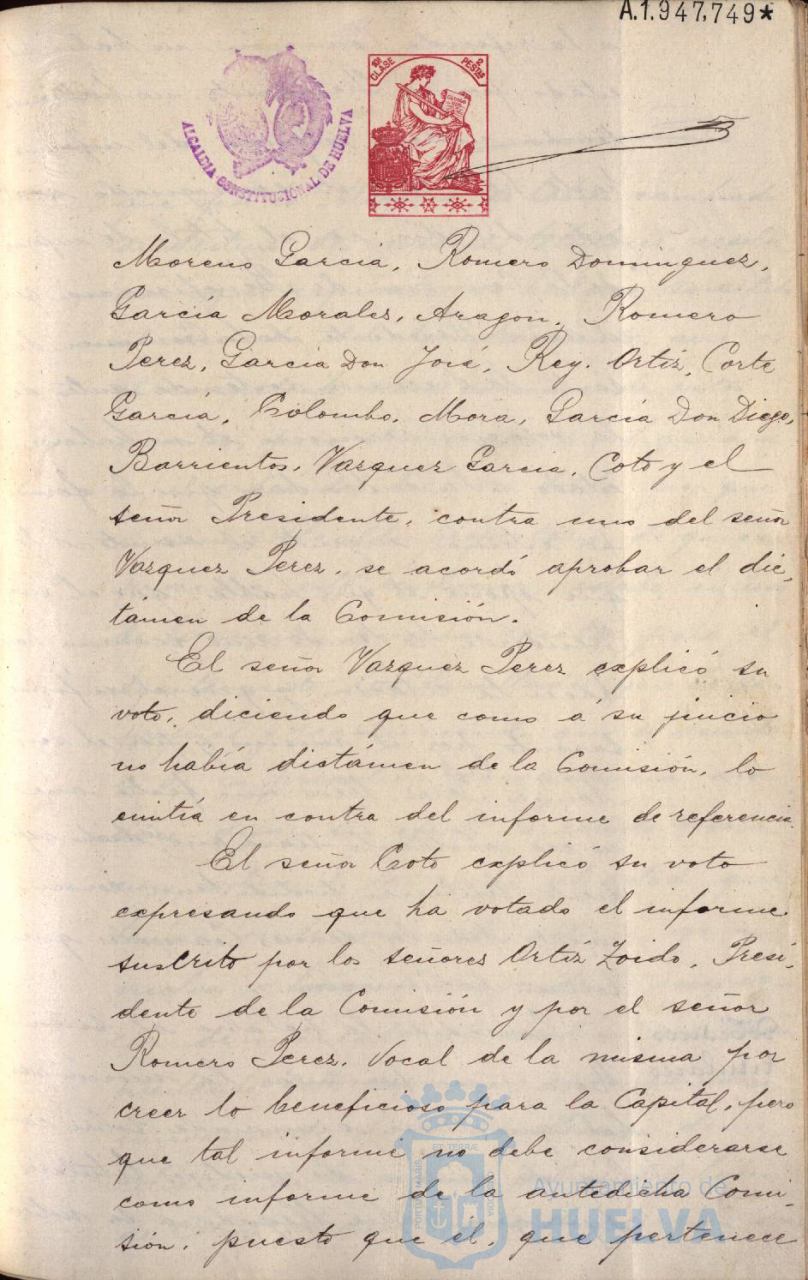 A.1.947,749*
ALCALDIA CONSTITUCIONAL DE HUELVA
CLASE
PESTAS
Moreno Garcia, Romero Dominguez,
García Morales, Aragon, Romero
Perez, Garcia Don José, Rey, Ortiz, Corte
García, Colombo, Mora, García Don Diego,
Barrientos, Vazquez Garcia, Coto y el
señor Presidente, contra uno del señor
Vazquez Perez, se acordó aprobar el dic-
támen de la Comisión.
El señor Vazquez Perez explicó su
voto, diciendo que como á su juicio
no había dictámen de la Comisión, lo
emitía en contra del informe de referencia.
El señor Coto explicó su voto
expresando que ha votado el informe
suscrito por los señores Ortiz Zoido, Presi-
dente de la Comisión y por el señor
Romero Perez, Vocal de la misma por
creer lo beneficioso para la Capital, pero
que tal informe no debe considerarse
como informe de la antedicha Comi-
sión, puesto que él, que pertenece
Ayuntamiento de
HUELVA